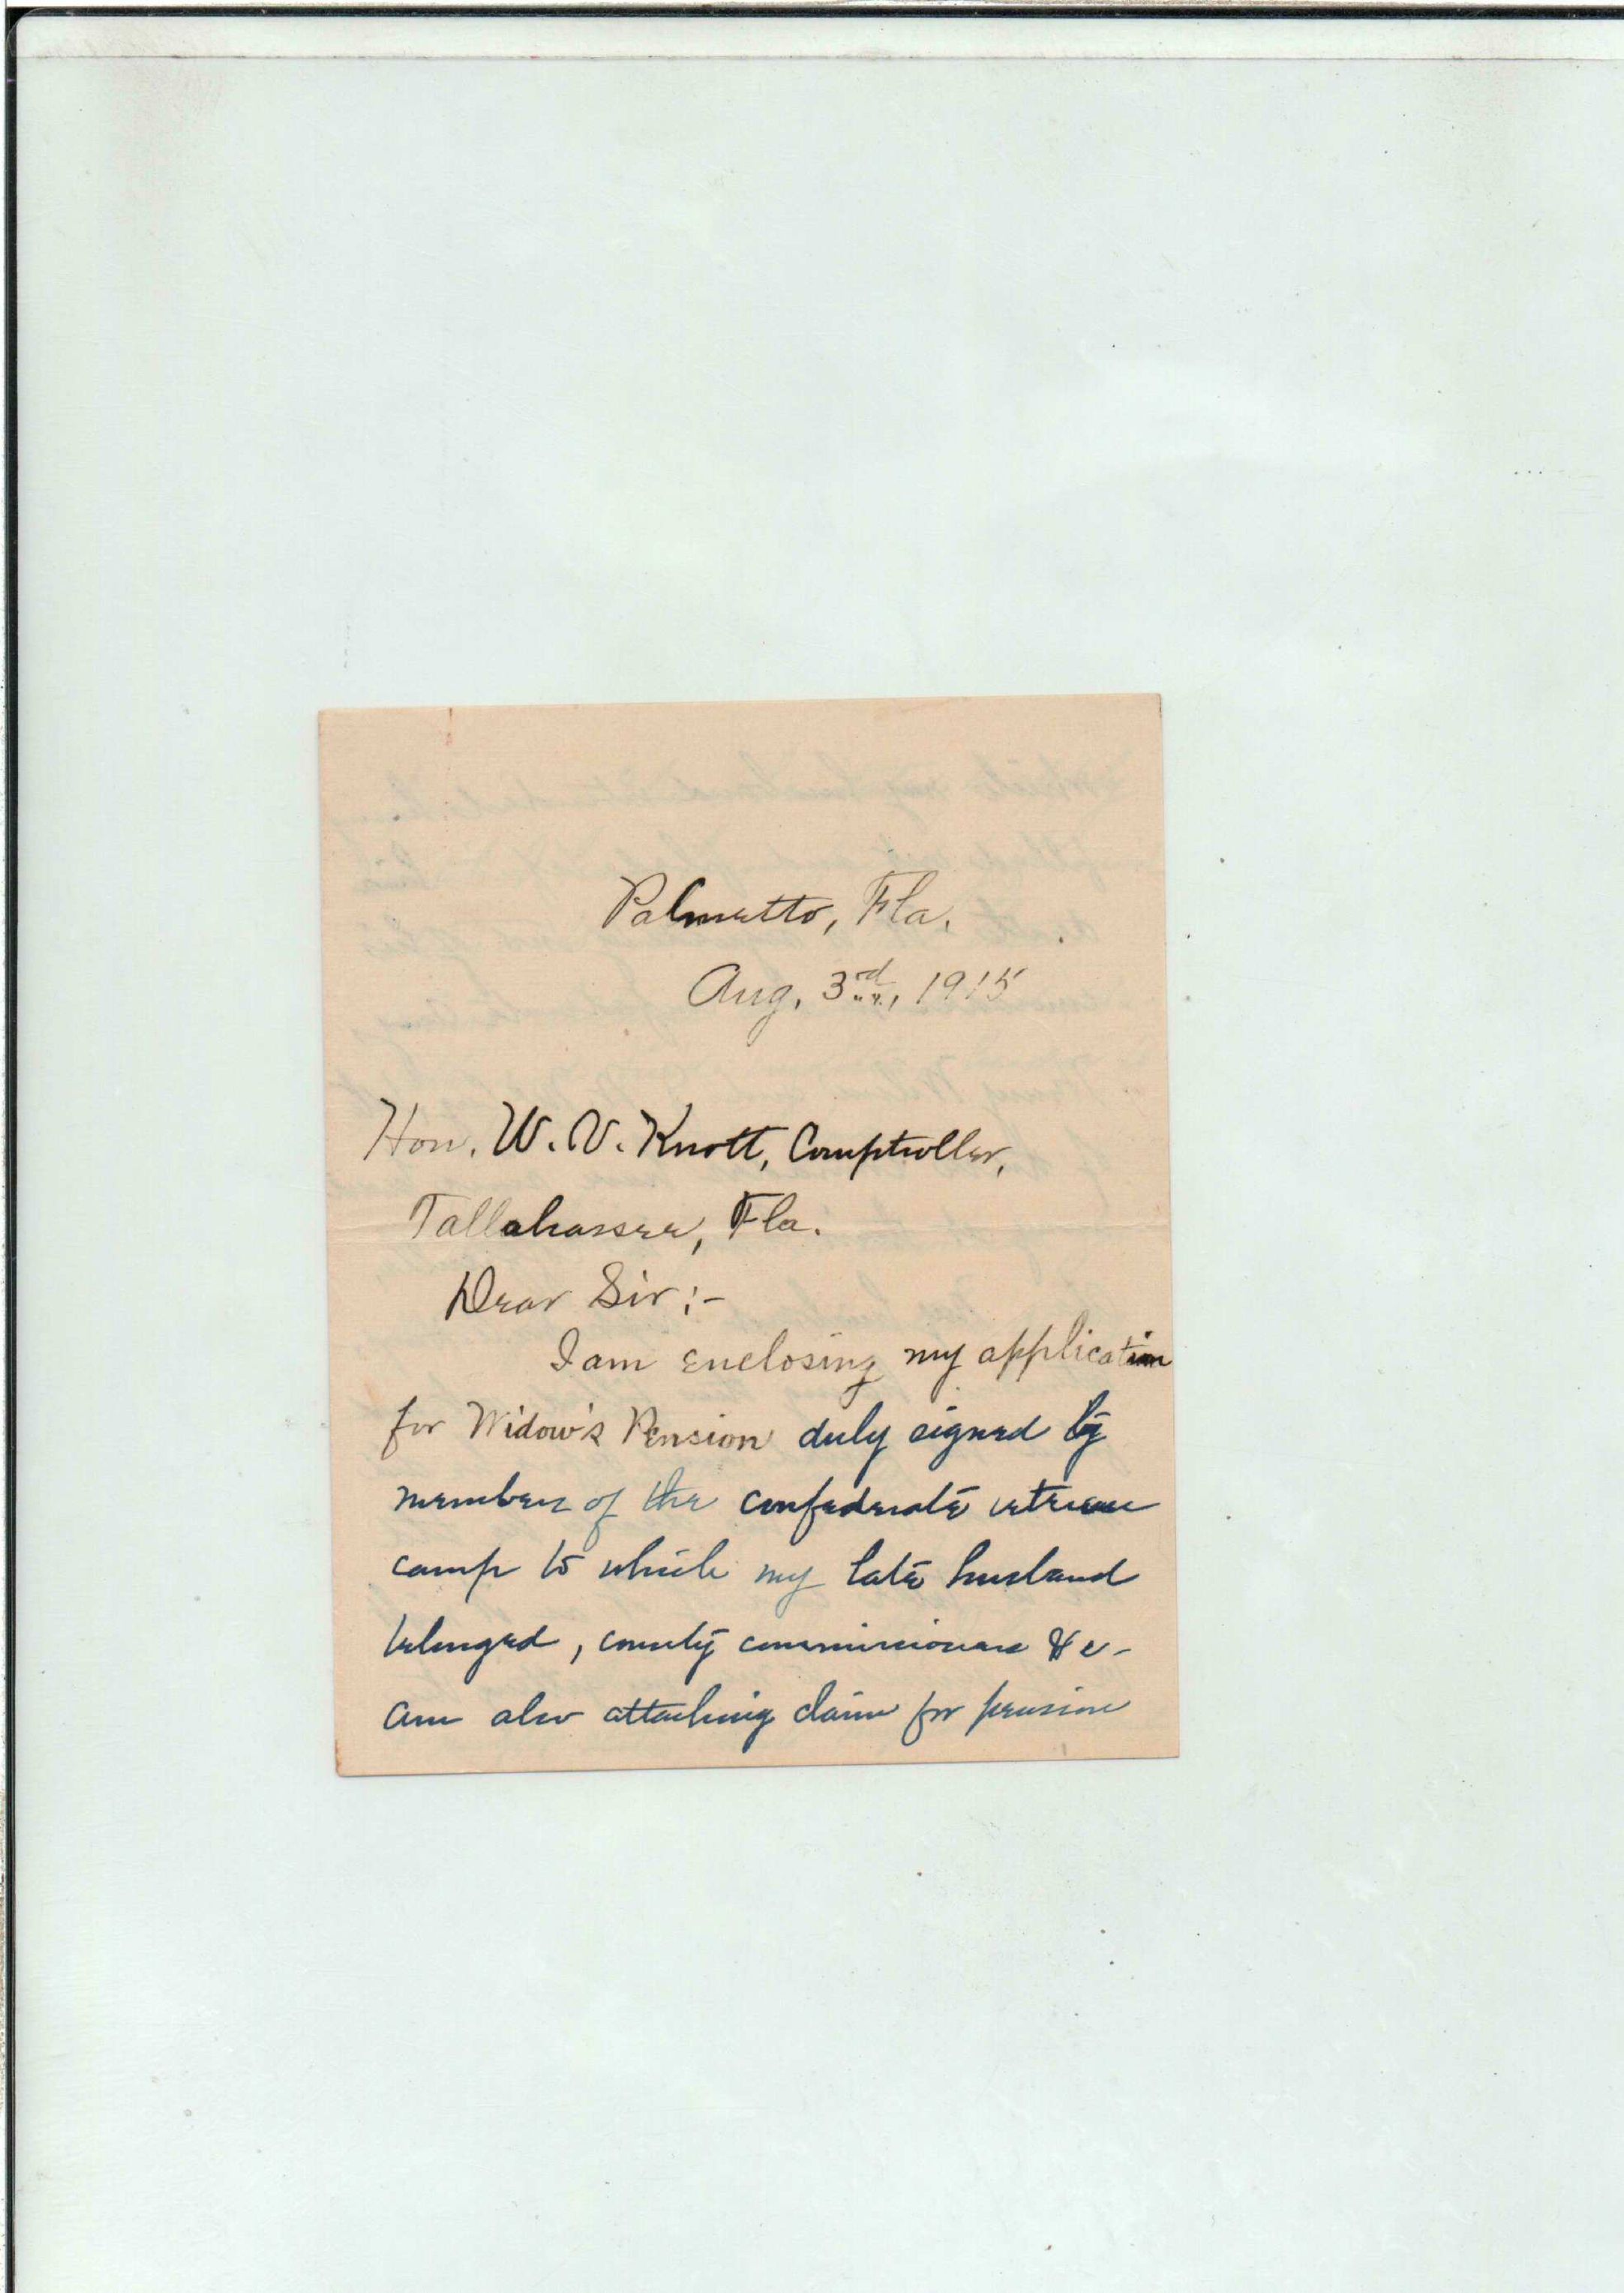 Palmetto, Fla.
Aug. 3rd, 1915
Hon. W. V. Knott, Comptroller,
Tallahassee, Fla.
Dear Sir:-
I am enclosing my application
for Widow's Pension duly signed by
members of the confederate veteran
camp to which my late husband
belonged, county commissioners &c-
Am also attaching claim for pension